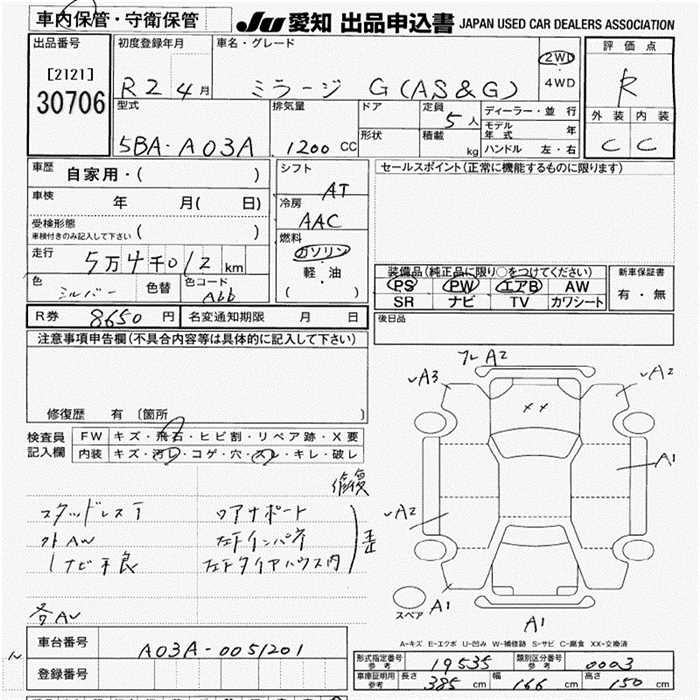 車内保管・守衛保管 JU 愛知 出品申込書 JAPAN USED CAR DEALERS ASSOCIATION
出品番号 初度登録年月 車名・グレード 評価点
[2121] R2 4月 ミラージュ G(AS&G) 2WD R
30706 ・4WD
型式 排気量 ドア 定員 5人 ディーラー・並行 外装 内装
5BA-A03A 1200 CC 形状 積載 kg モデル年式 年 C C
ハンドル 左・右
車歴 自家用・( ) シフト セールスポイント(正常に機能するものに限ります)
AT
車検 年 月( 日) 冷房
AAC
受検形態 ( )
車検付きのみ記入して下さい
燃料
走行 5万4千012 km ガソリン 装備品(純正品に限り○をつけてください) 新車保証書
色 シルバー 色替 色コード A66 軽・油 PS PW エアB AW 有・無
( ) SR ナビ TV カワシート
R券 8650円 名変通知期限 月 日 後日品
注意事項申告欄(不具合内容等は具体的に記入して下さい)
フレ A2
A3 A2
XX
修復歴 有 〔箇所 〕
検査員 FW キズ・飛石・ヒビ割・リペア跡・X要
記入欄 内装 キズ・汚レ・コゲ・穴・スレ・キレ・破レ
A1
修復
スタッドレスT ロアナポート
A2
外AW 左Fインパネ
ナビ不良 左Fタイヤハウス内
A1
スペア
A1
各AW
A-キズ E-エクボ U-凹み W-補修跡 S-サビ C-腐食 XX-交換済
車台番号 A03A-0051201
形式指定番号 参考 19535 類別区分番号 参考 0003
登録番号 車庫証明用 参考 長さ 385cm 幅 166cm 高さ 150cm